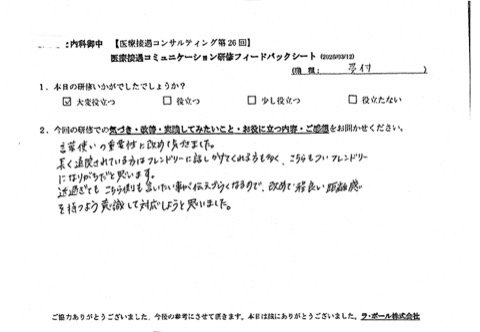 内科御中 【医療接遇コンサルティング第26回】
医療接遇コミュニケーション研修フィードバックシート (2025/03/12)
(職 種: 受付 )
1．本日の研修いかがでしたでしょうか？
☑ 大変役立つ □ 役立つ □ 少し役立つ □ 役立たない
2．今回の研修での気づき・改善・実践してみたいこと・お役に立つ内容・ご感想をお聞かせください。
言葉使いの重要性に改めて気づきました。
長く通院されている方はフレンドリーに話しかけてくれる方も多く、こちらもついフレンドリー
になりがちだと思います。
近過ぎても こちら側も言いたい事が伝えづらくなるので、改めて程良い距離感
を持つよう意識して対応しようと思いました。
ご協力ありがとうございました。今後の参考にさせて頂きます。本日は誠にありがとうございました。ラ・ポール株式会社